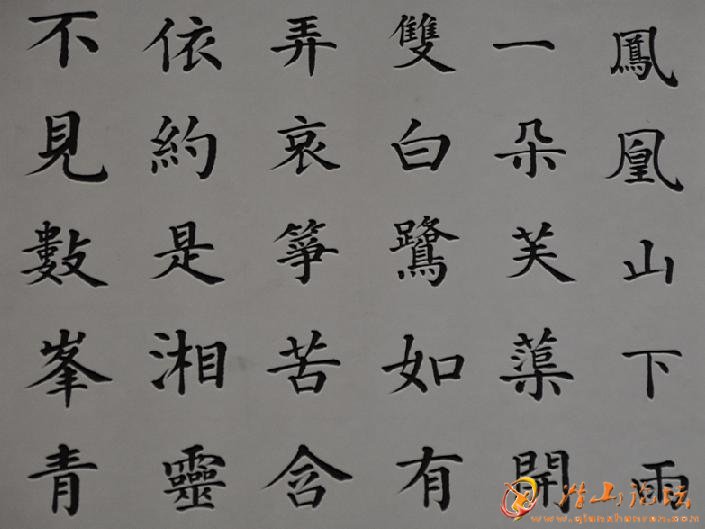 鳳凰山下雨
一朵芙蕖開
雙白鷺如有
弄哀箏苦含
依約是湘靈
不見數峯青
潜山论坛
www.qianshanren.com